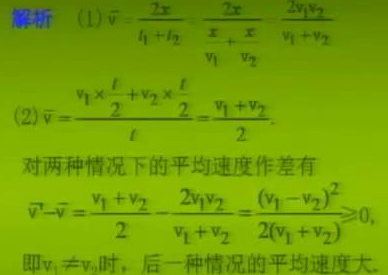 解析 (1) v̄ = 2x/(t₁+t₂) = 2x/(x/v₁ + x/v₂) = 2v₁v₂/(v₁+v₂)
(2) v̄ = (v₁×t/2+v₂×t/2)/t = (v₁+v₂)/2.
对两种情况下的平均速度作差有
v̄'-v̄ = (v₁+v₂)/2 - 2v₁v₂/(v₁+v₂) = (v₁-v₂)²/2(v₁+v₂) ≥0,
即v₁≠v₂时，后一种情况的平均速度大.